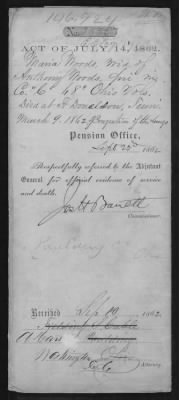 196.724
ACT OF JULY 14, 1862.
Maria Woods, wid. of
Anthony Woods, Priv. in
Co. "C" 48" Ohio Vols.
Died at Ft Donelson, Tenn.
March 9, 1862 of Congestion of the Lungs
Pension Office,
Sept 23d 1862
Respectfully referred to the Adjutant
General for official evidence of service
and death.
Jos H Barrett
Commissioner.
Paulding
Received Sep 19 1862.
Washington
D.C.
Attorney